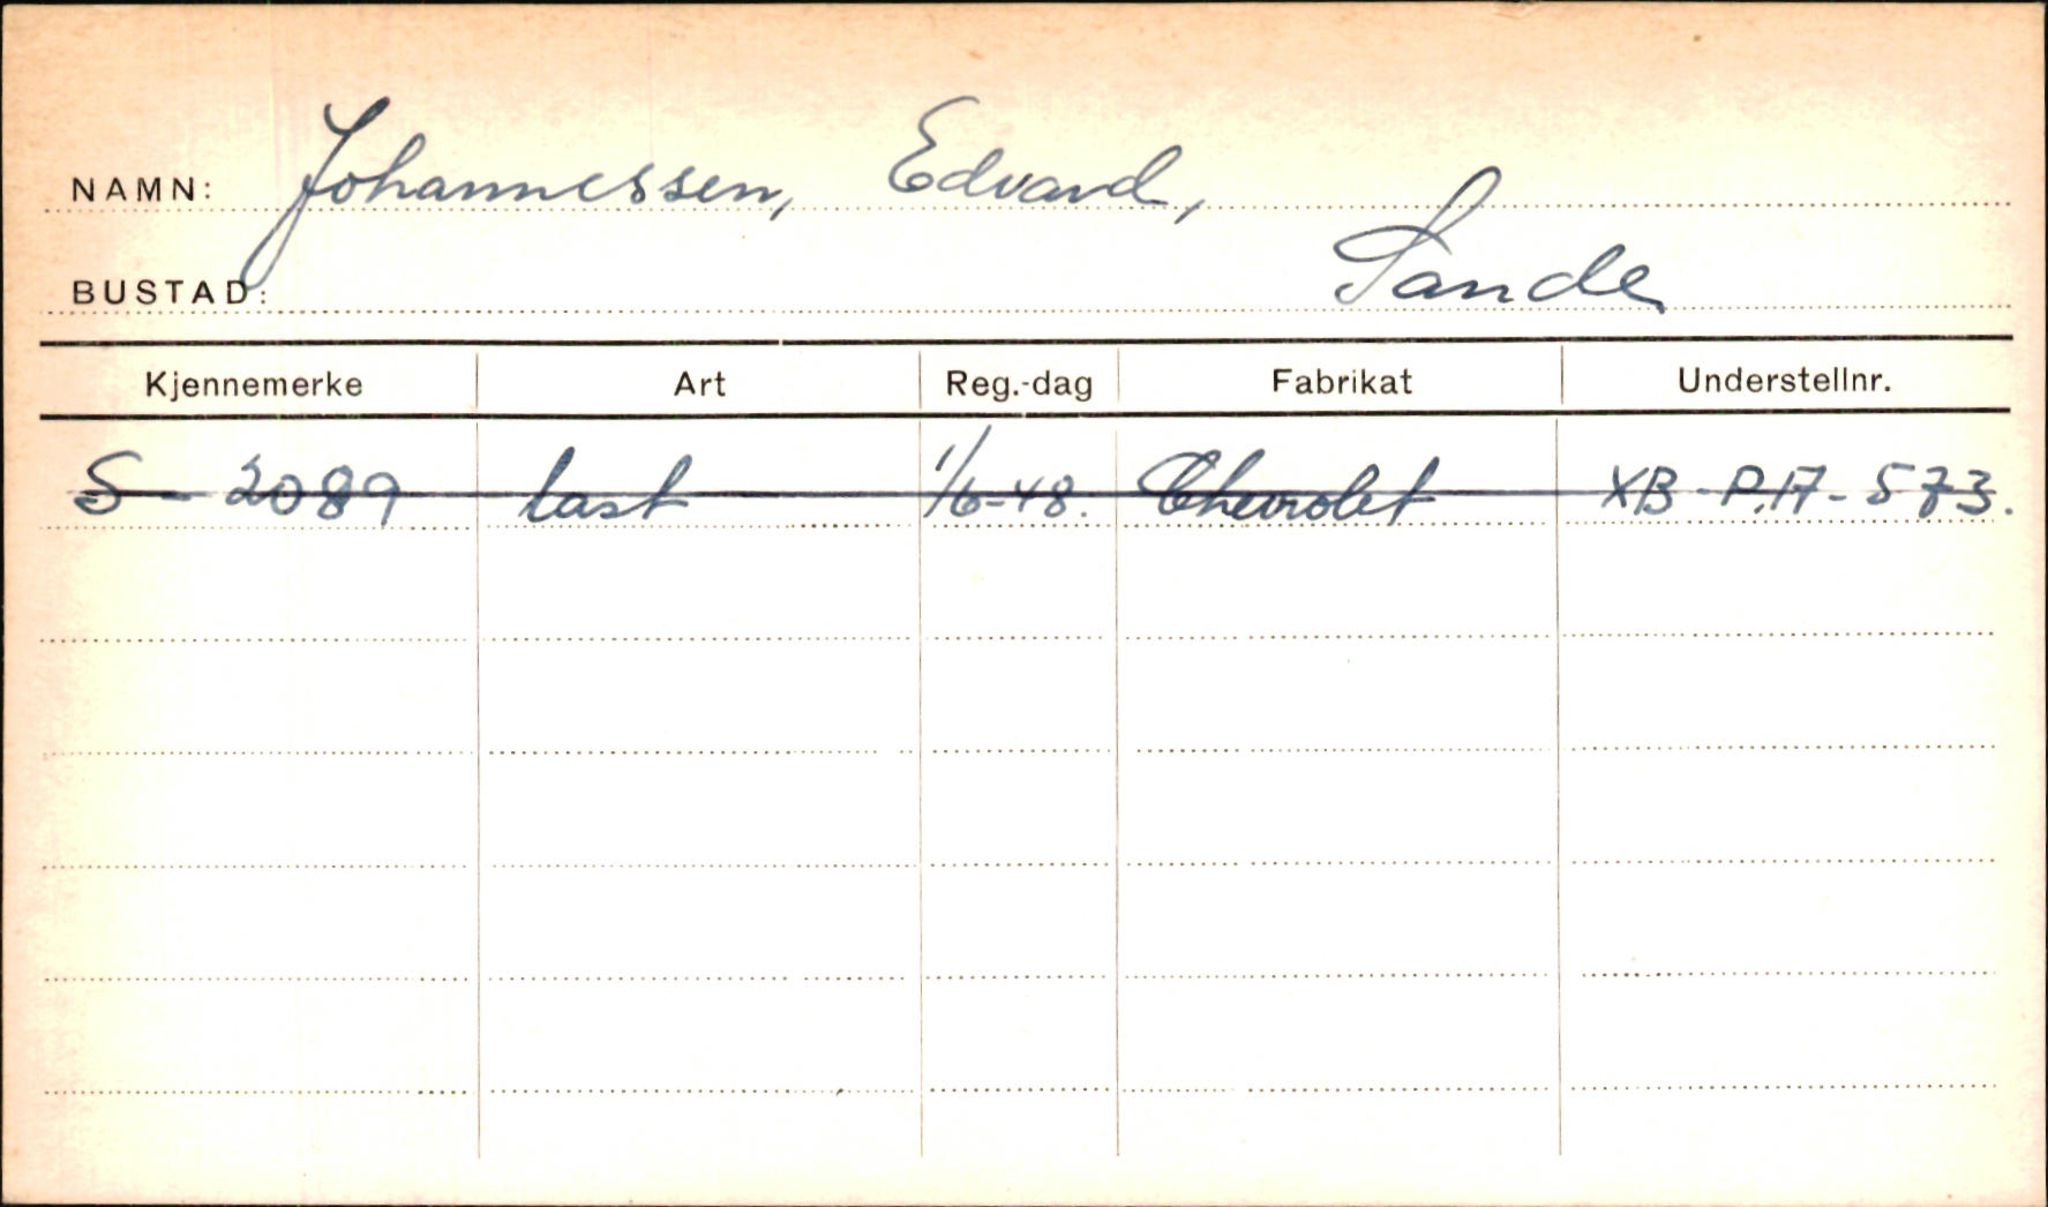 NAMN: Johannessen, Edvard,
BUSTAD: Sande
Kjennemerke Art Reg.-dag Fabrikat Understellnr.
S - 2089 last 1/6-48. Chevrolet XB - P.17 - 573.